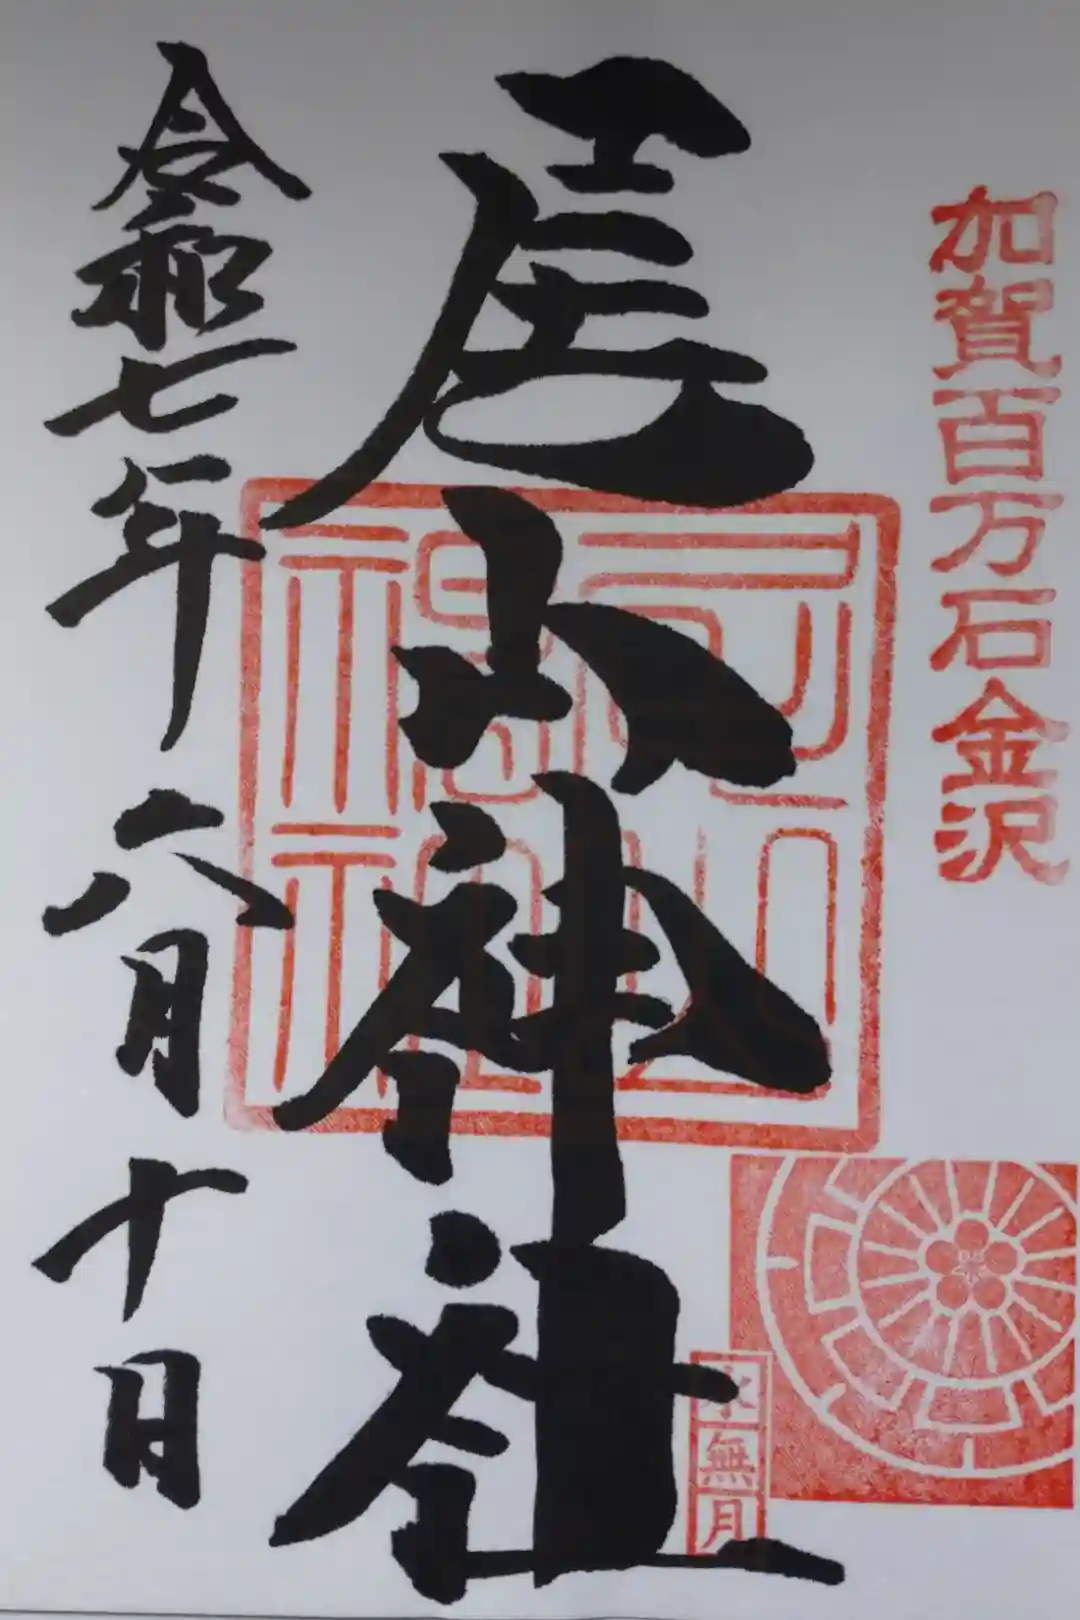 加賀百万石金沢
尾山神社
尾山神社
水無月
令和七年六月十日